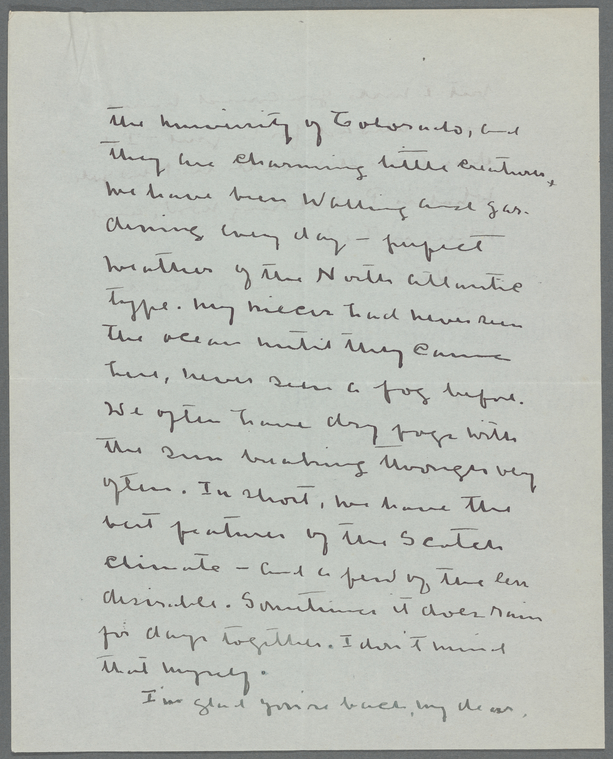 the University of Colorado, and
they are charming little creatures,
We have been Walking and gar-
dening every day – perfect
weather of the North Atlantic
type. My nieces had never seen
the ocean until they came
here, never seen a fog before.
We often have dry fogs with
the sun breaking through very
often. In short, we have the
best features of the Scotch
climate – and a few of the less
desirable. Sometimes it does rain
for days together. I don't mind
that myself.
I'm glad you're back, my dear.